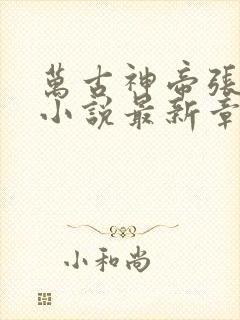 萬古神帝張
小說最新章
小和尚